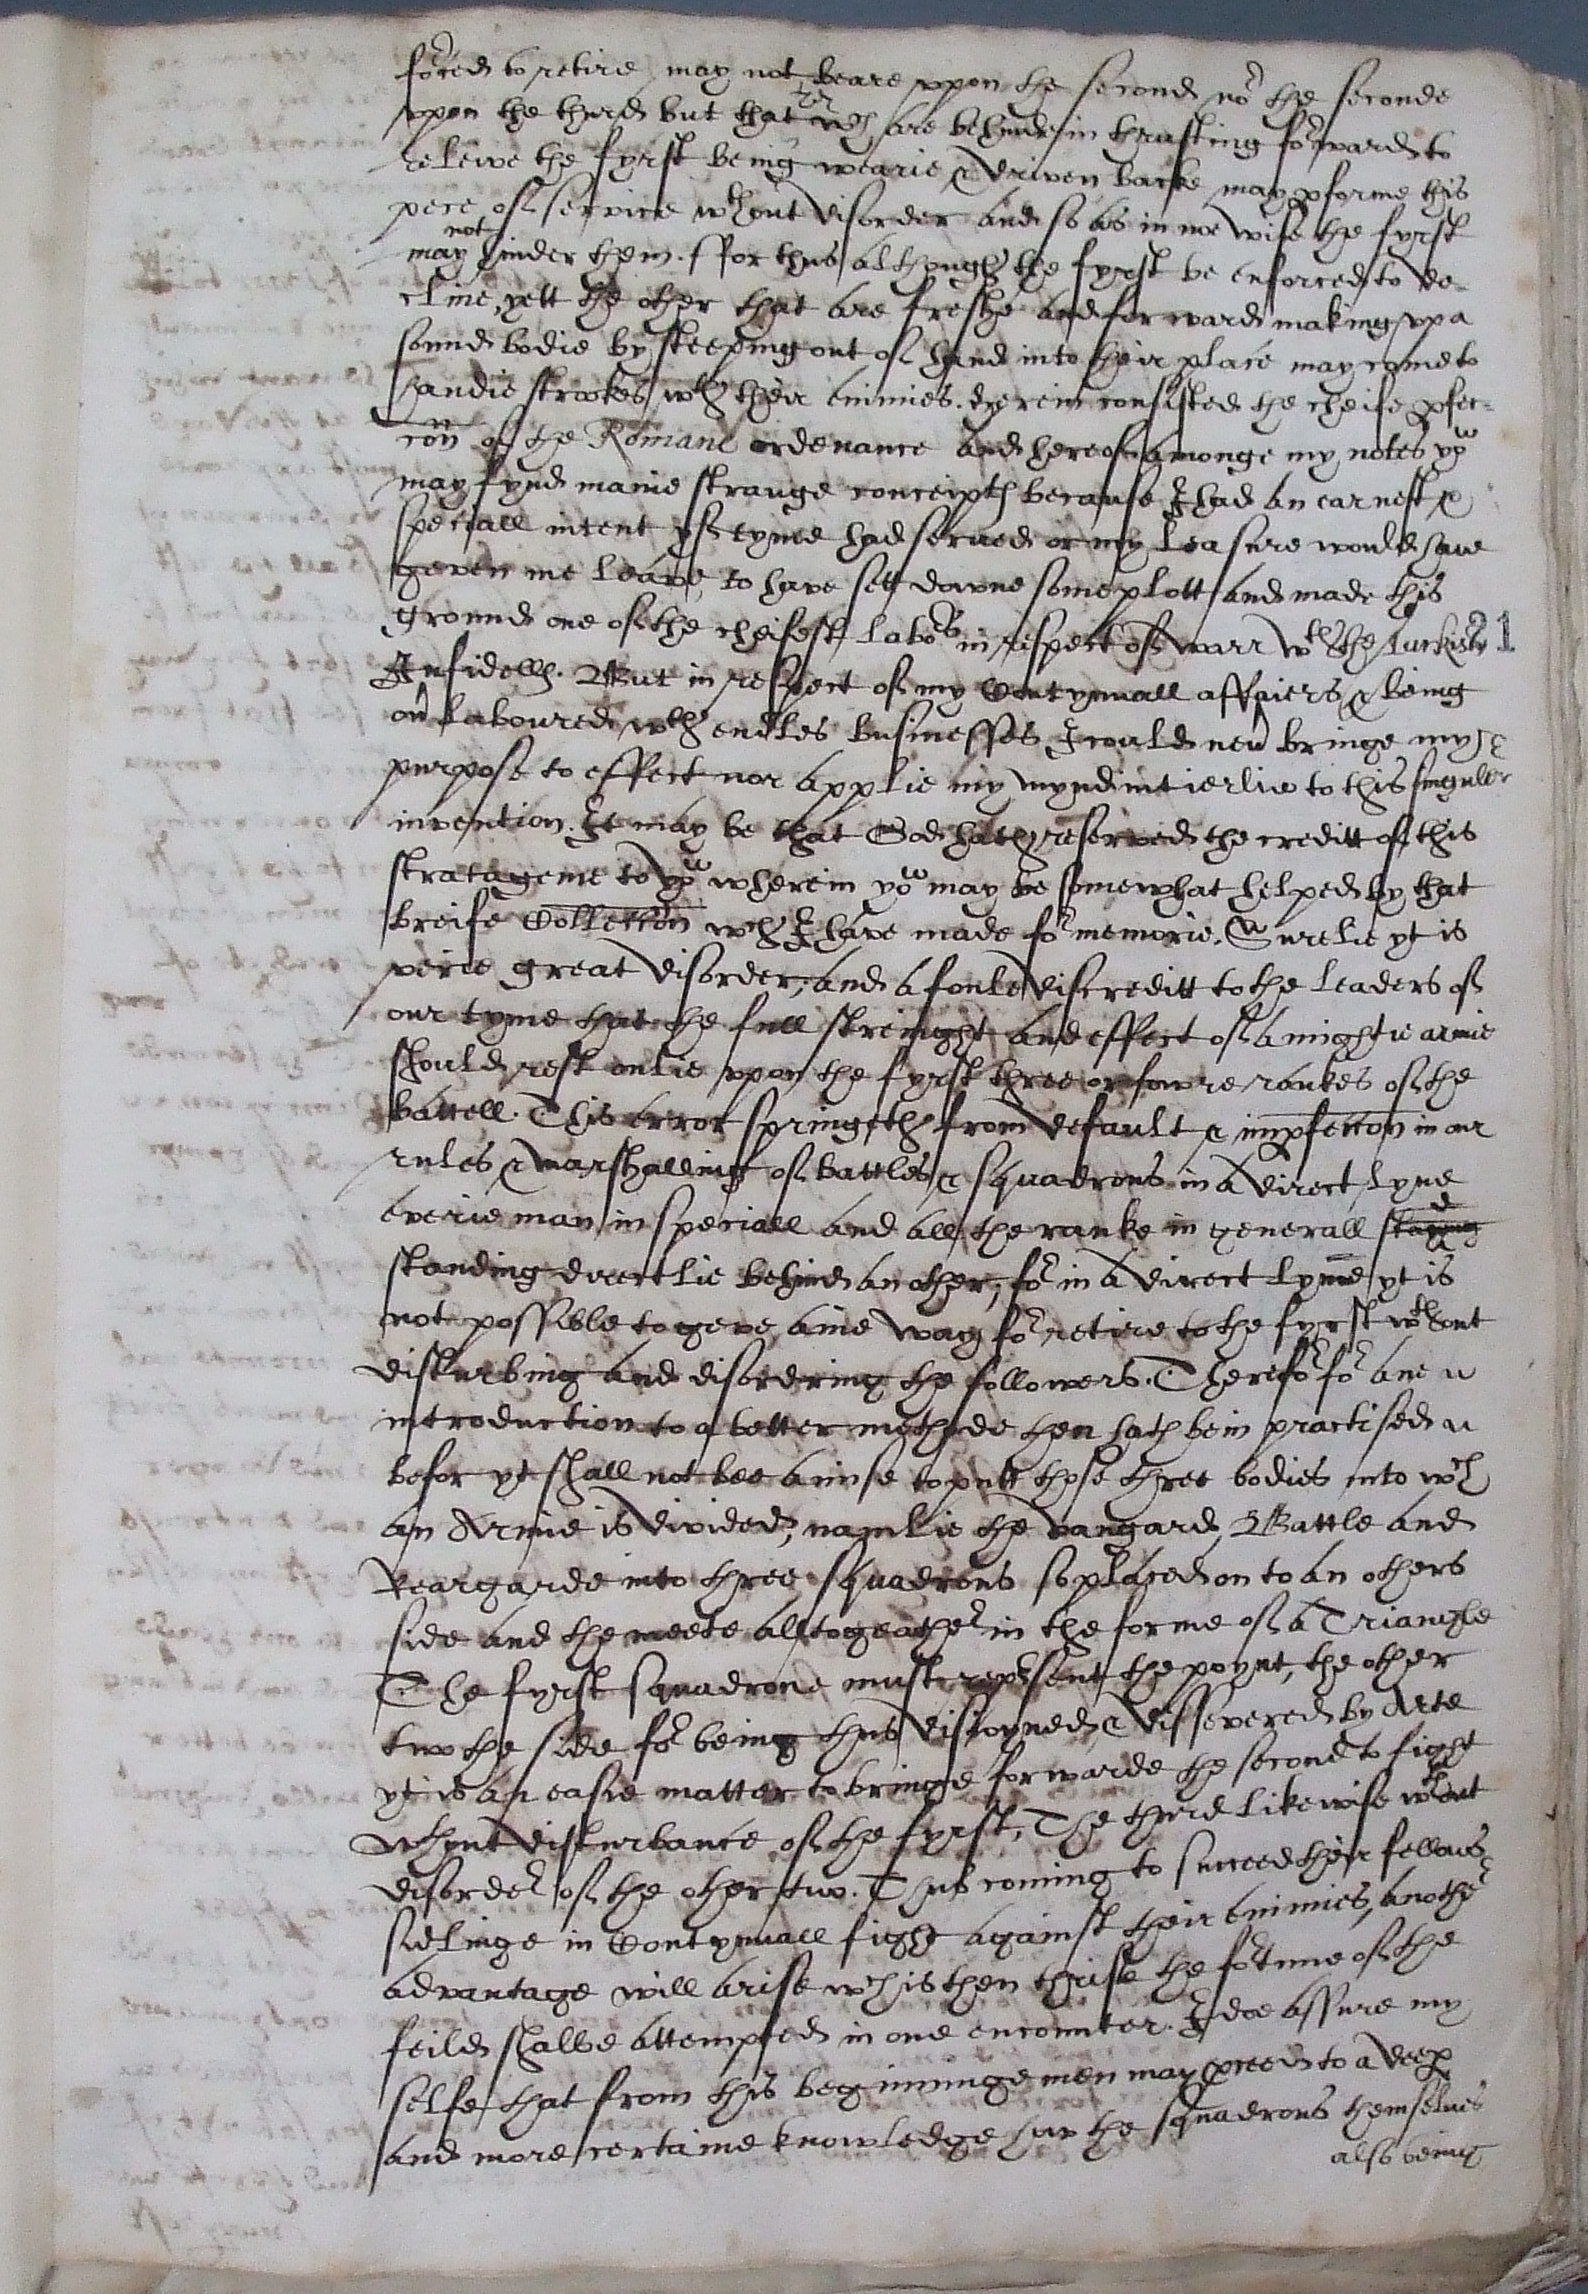 forced to retire may not beare vpon the second nor the seconde
vpon the third but that wch are behinde in thrusting forward to
relewe the fyrst being wearie & driven backe may pforme this
pece of service wthout disorder and so as in noe wise the fyrst
may not hinder them. ffor thus although the fyrst be enforced to de-
cline, yett the other that are freshe and forward making vp a
sound bodie by steeping out of hand into their place may come to
handie strookes wth their enimies. herein consisted the cheife pfec-
con of the Romane ordenance and hereof amonge my notes yow
may fynd manie strange conceipts because I had an earnest &
speciall intent yf tyme had served or my leasure would have
geven me leave, to have sett downe some plott and made this
ground one of the cheifest labors in respect of warr wth the Turkish 1
Infidells. But in respect of my Contynuall affaiers & being
ou laboured wth endles businesses I could neu bringe my
purpose to effect nor applie my mynd intierlie to this singuler
invention. It may be that God hath reserved the creditt of this
stratageme to yow wherein yow may be somewhat helped by that
breife Collection wch I have made for memorie. Surelie yt is
verie great disorder, and a foule discreditt to the leaders of
our tyme that the full streinght and effect of a mightie armie
should rest onlie vpon the fyrst three or fowre rankes of the
battell. This error springeth from default & impfeccon in our
rules & marshalling of battles & squadrons in a direct lyne
everie man in speciall and all the ranke in generall staying
standing directlie behind another, for in a direct lynne yt is
not possible to geve anie way for retire to the fyrst wthout
disturbing and disordering the followers. Therefor for ane
introduction to a better methode then hath bein practised
befor yt shall not bee amise to putt those three bodies into wch
an Armie is divided, namlie the vangard, Battle and
Reargarde into three squadrons so placed on to an others
side and the meete alltogeather in the forme of a Triangle
The fyrst squadrone must represent the poynt, the other
two the side for being thus disioyned & dissevered by Arte
yt is an easie matter to bringe forwarde the second to fight
wthout disturbance of the fyrst, The third likewise wthout
disorder of the other two. Thus coming to succeed their fellows
sidlinge in Contynuall fight against their enimies, another
advantage will arise wch is then thrise the fortune of the
feild shalbe attempted in one encounter. I doe assure my
selfe that from this beginninge men may proceed to a deep
and more certaine knowledge how the squadrons themselues
also being